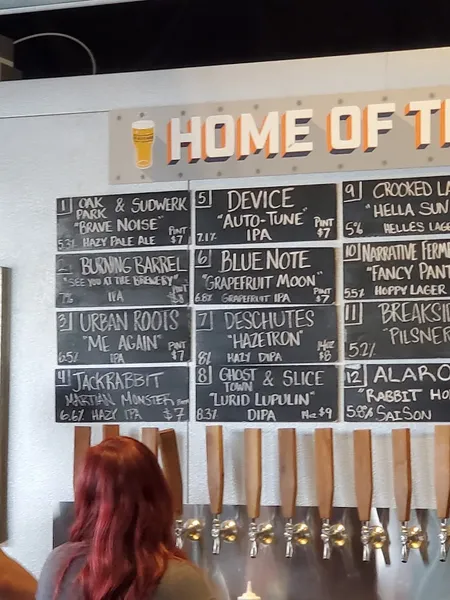 HOME OF
1 OAK PARK & SUDWERK
"BRAVE NOISE" PINT
5.3% HAZY PALE ALE $7
2 BURNING BARREL
"SEE YOU AT THE BREWERY"
7% IPA
3 URBAN ROOTS
"ME AGAIN" PINT
6.5% IPA $7
4 JACKRABBIT
MARTIAN MONSTER
6.6% HAZY IPA $7
5 DEVICE
"AUTO-TUNE" PINT
7.1% IPA $7
6 BLUE NOTE
"GRAPEFRUIT MOON" PINT
6.8% GRAPEFRUIT IPA $7
7 DESCHUTES
"HAZETRON" 14oz
8% HAZY DIPA $8
8 GHOST TOWN & SLICE
"LURID LUPULIN"
8.3% DIPA 14oz $9
9 CROOKED LA
"HELLA SUN
5% HELLES LAGE
10 NARRATIVE FERME
"FANCY PANT
5.5% HOPPY LAGER
11 BREAKSID
"PILSNER
5.2%
12 ALARO
"RABBIT HO
5.8% SAISON